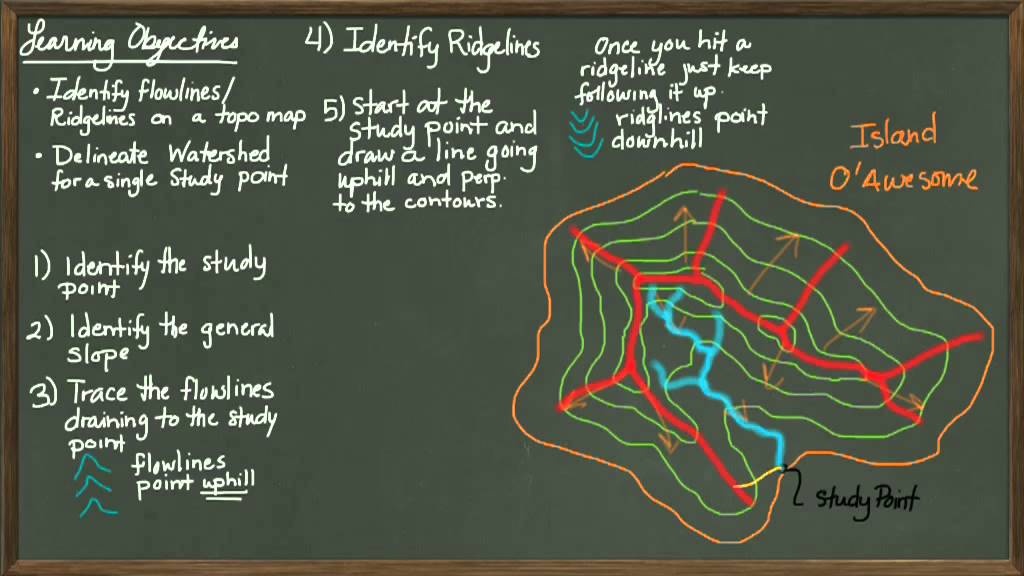 Learning Objectives
• Identify Flowlines/
Ridgelines on a topo map
• Delineate Watershed
for a single Study point
1) Identify the study
point
2) Identify the general
slope
3) Trace the flowlines
draining to the study
point
flowlines
point uphill
4) Identify Ridgelines
5) Start at the
study point and
draw a line going
uphill and perp.
to the contours.
Once you hit a
ridgeline just keep
following it up.
ridglines point
downhill
Island
O'Awesome
Study Point